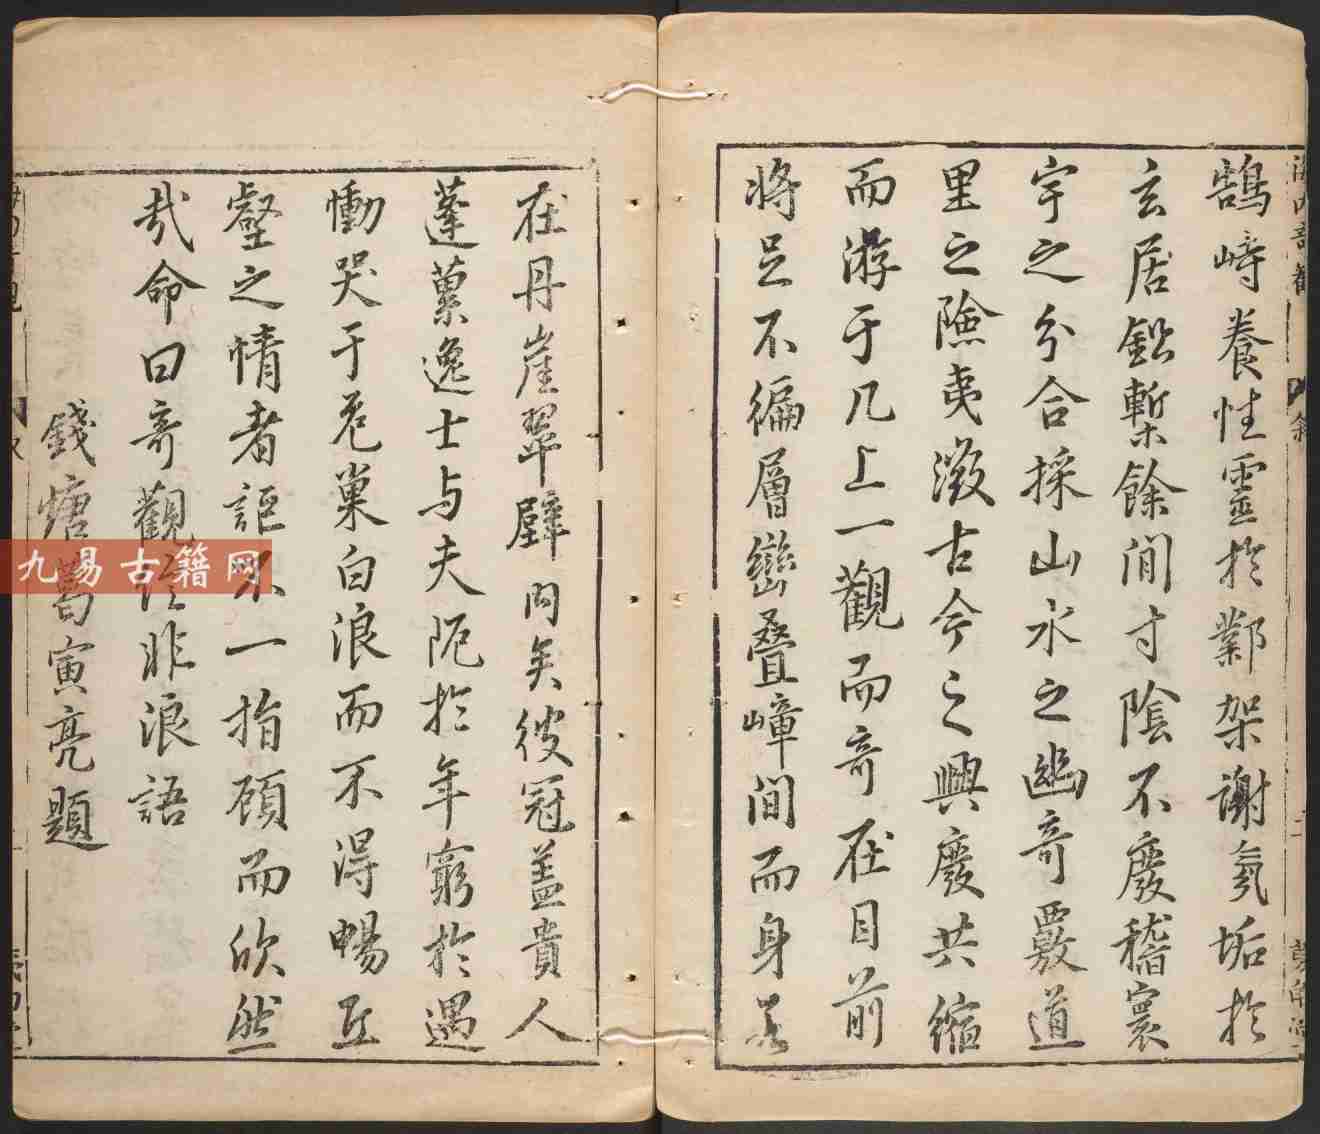 鵠峙養性靈於鄴架謝氛垢於
玄居鉛槧餘閒寸陰不廢稽寰
宇之分合採山水之幽奇覈道
里之險夷溦古今之興廢共縮
而游于几上一觀而奇在目前
將足不徧層巒疊嶂間而身若
在丹崖翠壁內矣彼冠蓋貴人
蓬蔂逸士与夫阨於年窮於遇
慟哭于危巢白浪而不得暢丘
壑之情者詎不一指顧而欣然
哉命曰奇觀非浪語
錢塘葛寅亮題
九易古籍网